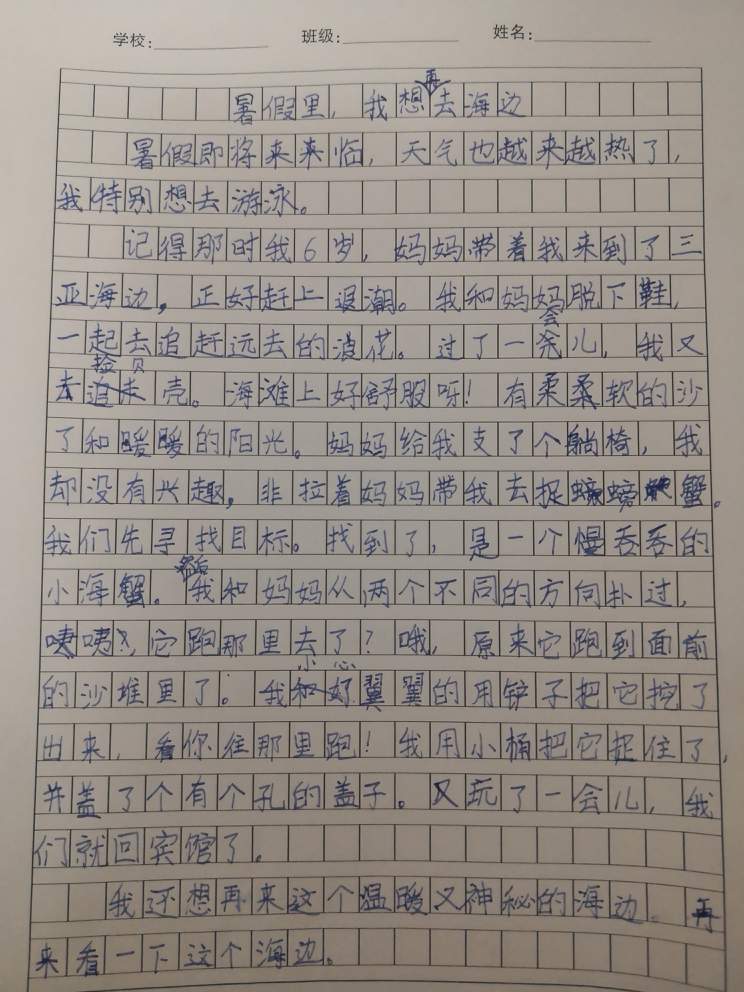 学校：　班级：　姓名：
暑假里，我想再去海边
暑假即将来来临，天气也越来越热了，
我特别想去游泳。
记得那时我6岁，妈妈带着我来到了三
亚海边，正好赶上退潮。我和妈妈脱下鞋，
一起去追赶远去的浪花。过了一会儿，我又
去捡贝壳。海滩上好舒服呀！有柔柔软的沙
了和暖暖的阳光。妈妈给我支了个躺椅，我
却没有兴趣，非拉着妈妈带我去捉螃蟹。
我们先寻找目标。找到了，是一个慢吞吞的
小海蟹。然后我和妈妈从两个不同的方向扑过，
咦咦？，它跑那里去了？哦，原来它跑到面前
的沙堆里了。我小心翼翼的用铲子把它挖了
出来，看你往那里跑！我用小桶把它捉住了，
并盖了个有个孔的盖子。又玩了一会儿，我
们就回宾馆了。
我还想再来这个温暖又神秘的海边。再
来看一下这个海边。